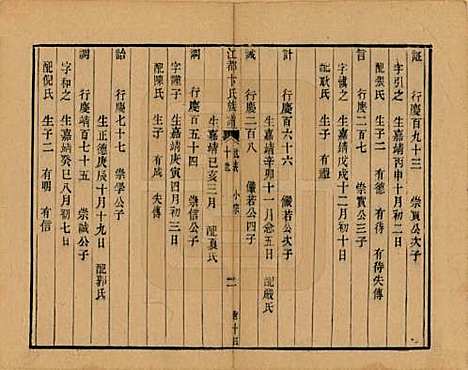 証 行慶百九十三 崇賓公次子
字引之 生嘉靖丙申十月初二日
配裴氏 生子二 有德 有待 有待失傳
言 行慶二百七 崇賓公三子
字慎之 生嘉靖戊戌十二月初十日
配耿氏 生子 有禮
計 行慶百六十六 儼若公次子
生嘉靖辛卯十一月念五日 配嚴氏
誠 行慶二百八 儼若公四子
生嘉靖己亥三月 配袁氏
江都卞氏族譜 世表 小宗 十世 二
調 行慶百五十四 崇信公子
字燮子 生嘉靖庚寅四月初三日
配陳氏 生子 有成 失傳
詥 行慶七十七 崇學公子
生正德庚辰十月十九日 配郭氏
調 行慶百七十五 崇誠公子
字和之 生嘉靖癸巳八月初三日
配倪氏 生子二 有明 有信